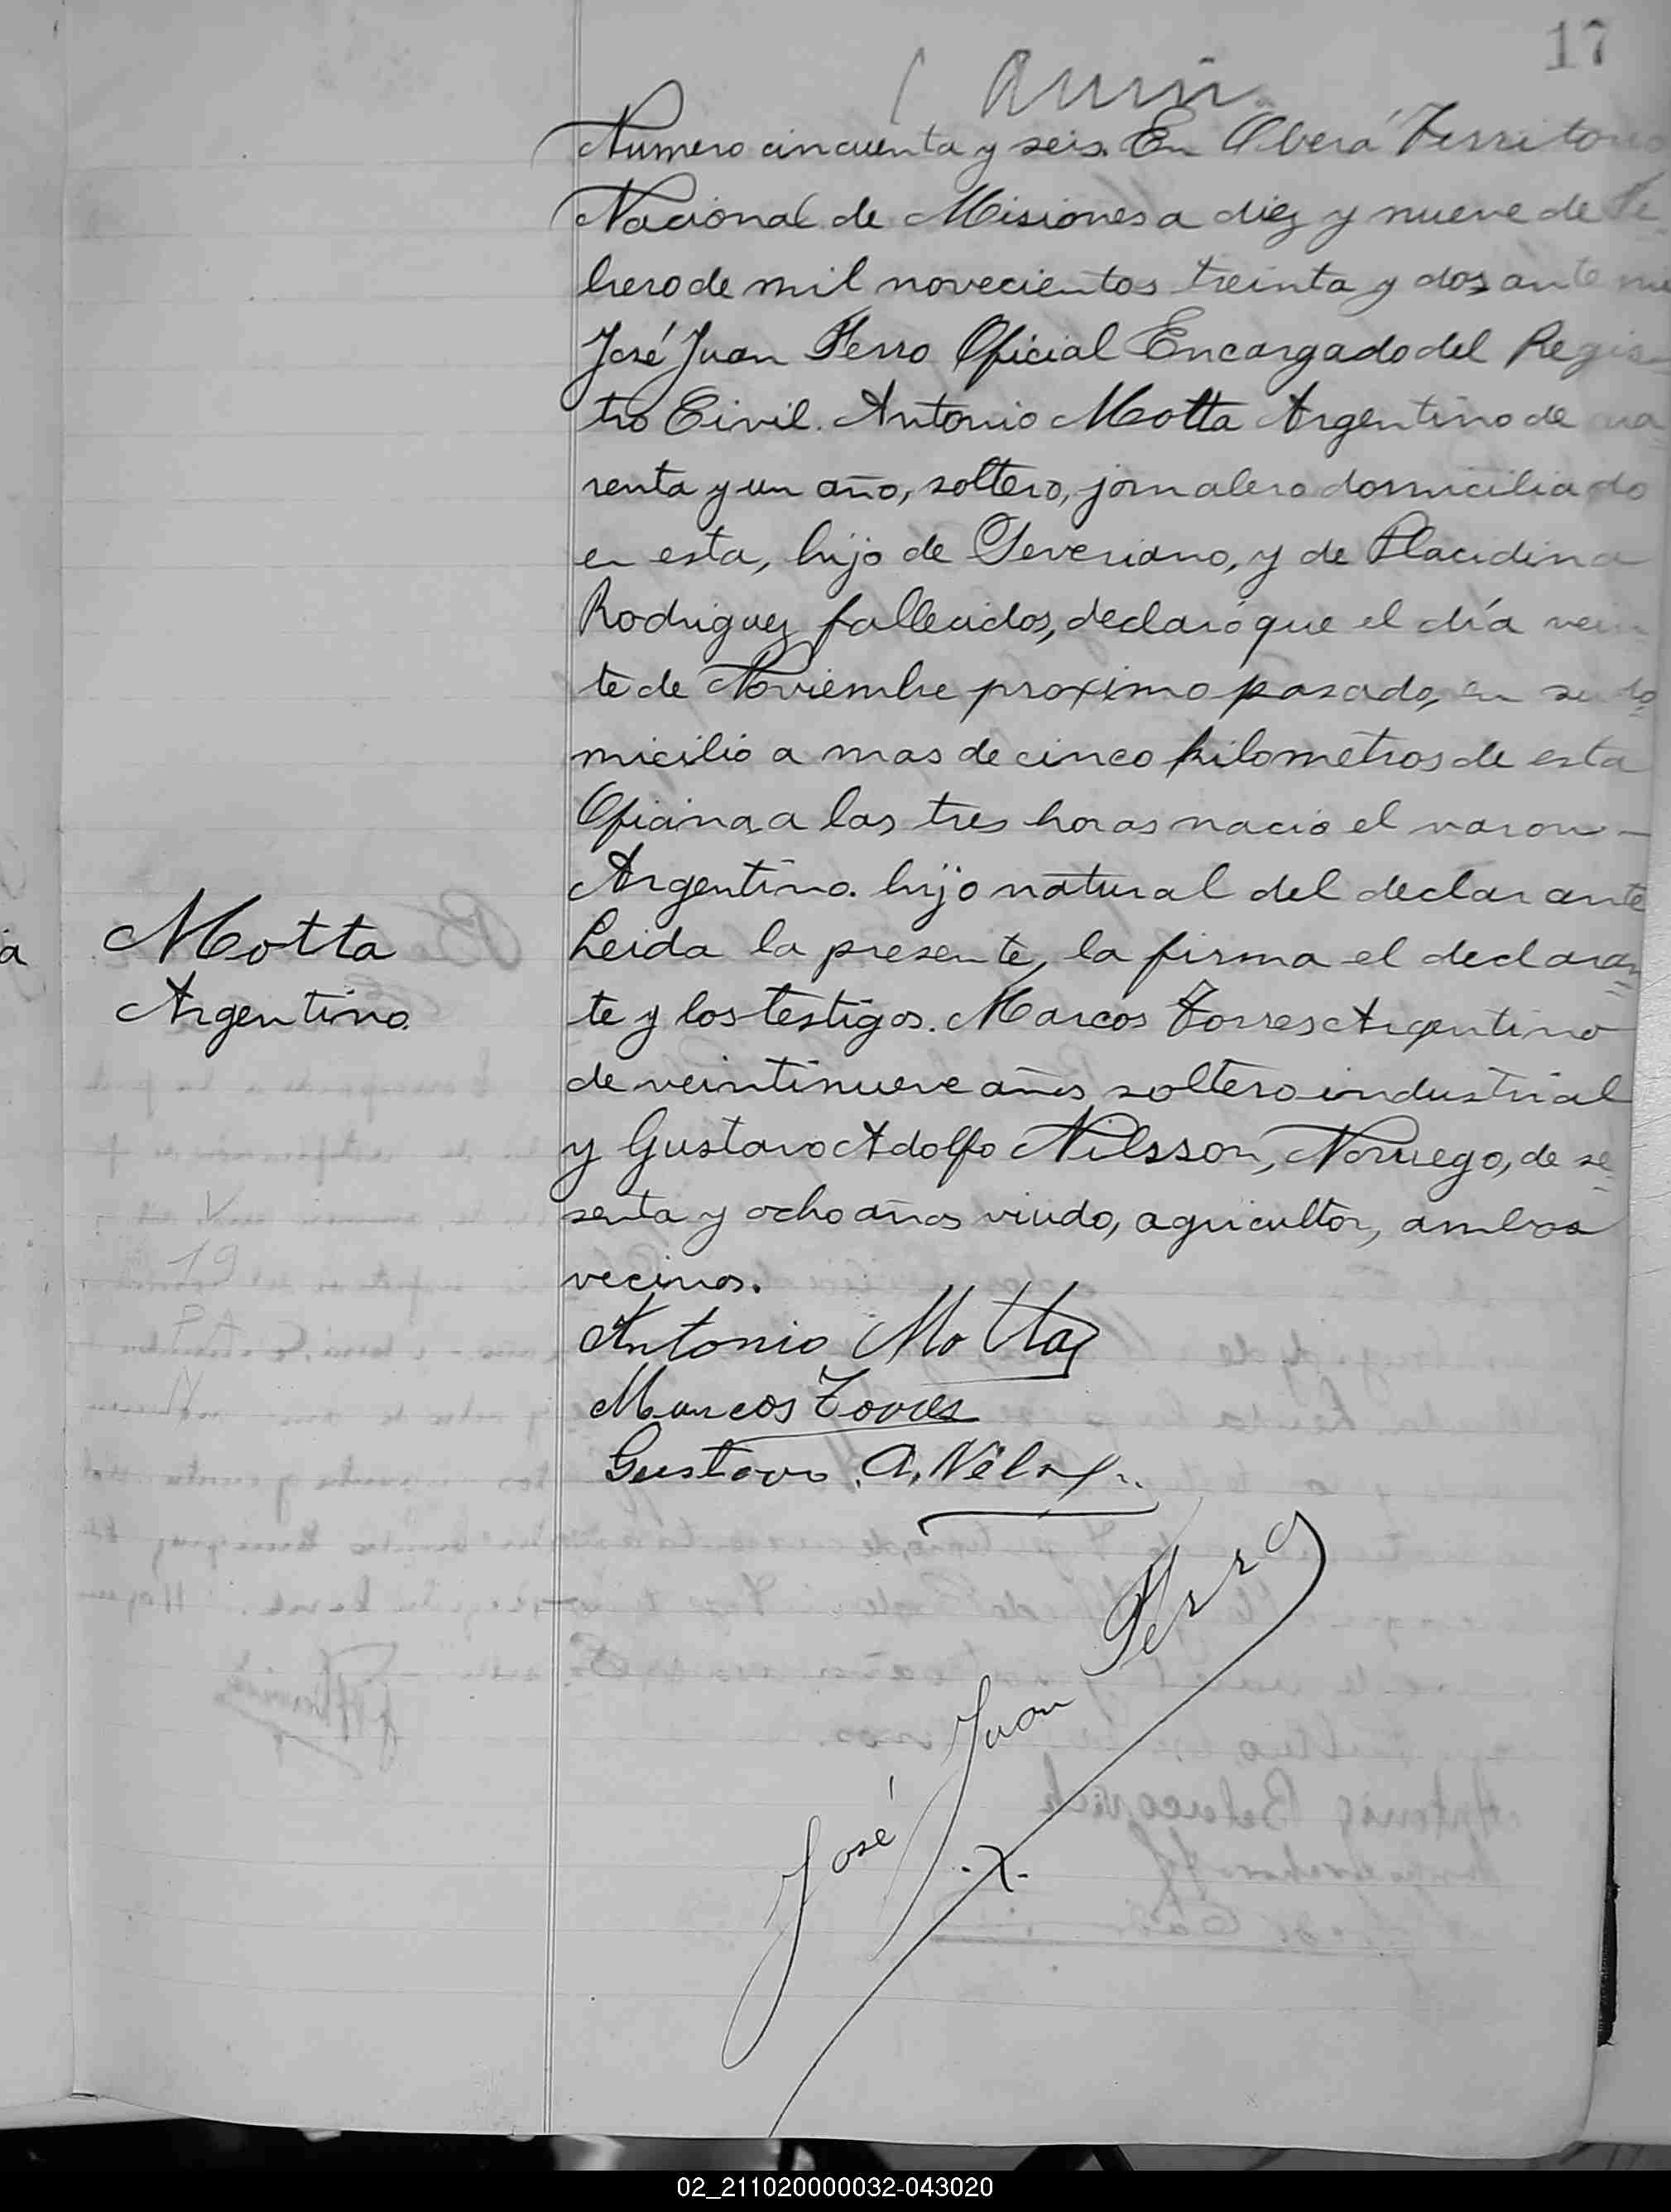 17
Numero cincuenta y seis. En Oberá Territorio
Nacional de Misiones a diez y nueve de Fe-
brero de mil novecientos treinta y dos, ante mi
José Juan Ferro Oficial Encargado del Regis-
tro Civil. Antonio Motta Argentino de cua-
renta y un año, soltero, jornalero domiciliado
en esta, hijo de Severiano, y de Placidina
Rodriguez fallecidos, declaró que el día vein-
te de Noviembre proximo pasado, en su do-
micilio a mas de cinco kilometros de esta
Oficina, a las tres horas nacio el varon —
Argentino. hijo natural del declarante
Leida la presente, la firma el declaran-
te y los testigos. Marcos Torres Argentino
de veintinueve años soltero industrial
y Gustavo Adolfo Nilsson, Noruego, de se-
senta y ocho años viudo, agricultor, ambos
vecinos.
Motta
Argentino.
Antonio Motta
Marcos Torres
Gustavo A.
José Juan Ferro
02_211020000032-043020